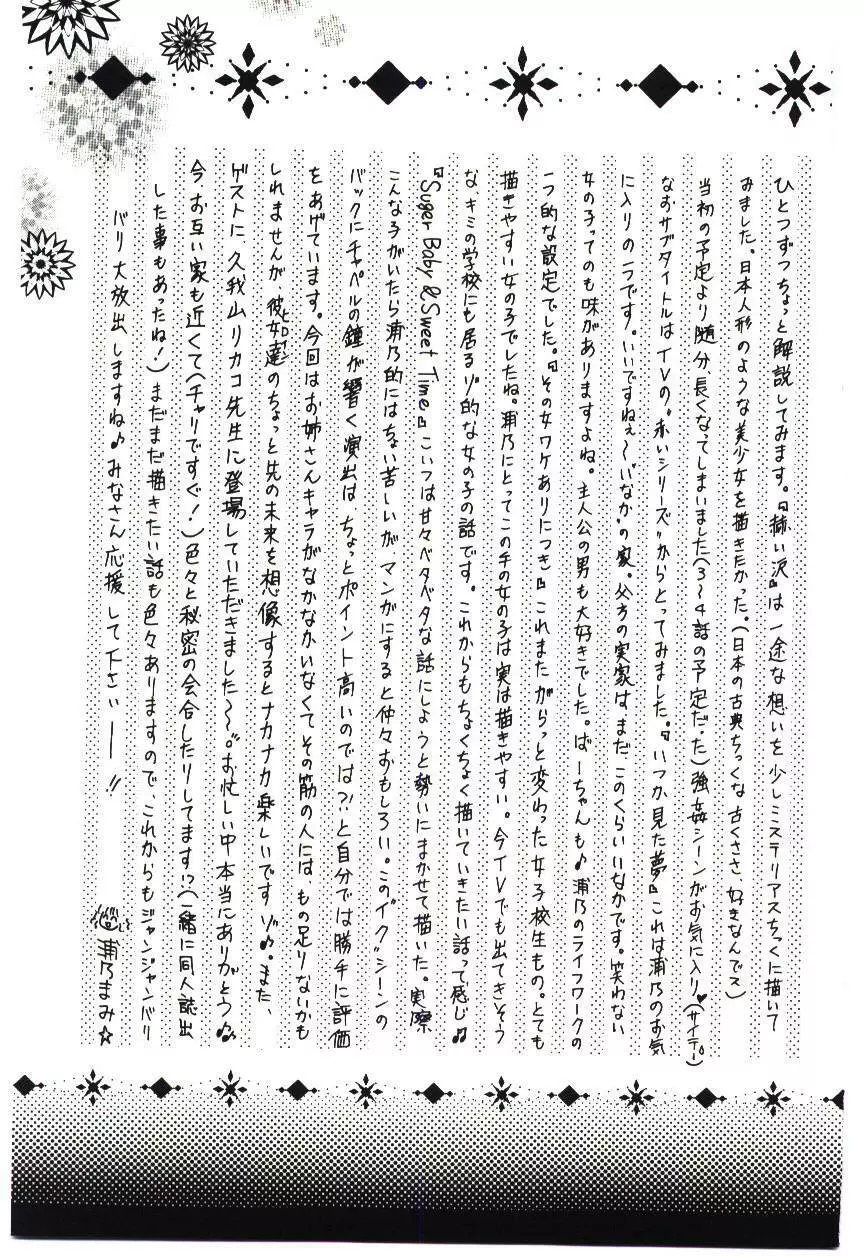 ひとつずつちょっと解説してみます。『赫い沢』は一途な想いを少しミステリアスちっくに描いて
みました。日本人形のような美少女を描きたかった。(日本の古典ちっくな古くささ、好きなんでス)
当初の予定より随分、長くなってしまいました(3〜4話の予定だった)強姦シーンがお気に入り♥(サイテー)
なおサブタイトルはTVの“赤いシリーズ”からとってみました。『いつか見た夢』これは浦乃のお気
に入りの一ラです。いいですねぇ〜“いなか”の家。父方の実家は、まだこのくらいいなかです。笑わない
女の子ってのも味がありますよね。主人公の男も大好きでした。ばーちゃんも♪浦乃のライフワークの
一つ的な設定でした。『その女ワケありにつき』これまたがらっと変わった女子校生もの。とても
描きやすい女の子でしたね。浦乃にとってこの手の女の子は実は描きやすい。今TVでも出てきそう
な、キミの学校にも居るゾ的な女の子の話です。これからもちょくちょく描いていきたい話って感じ♪
『Suger Baby & Sweet Time』こいつは甘々ベタベタな話にしようと勢いにまかせて描いた。実際
こんな子がいたら浦乃的にはちょい苦しいがマンガにすると仲々おもしろい。この“イク”シーンの
バックにチャペルの鐘が響く演出は、ちょっとポイント高いのでは?!と自分では勝手に評価
をあげています。今回はお姉さんキャラがなかなかいなくてその筋の人には、もの足りないかも
しれませんが、彼女達のちょっと先の未来を想像するとナカナカ楽しいですゾ♪。また、
ヒロイン
ゲストに久我山リカコ先生に登場していただきました〜〜。お忙しい中本当にありがとう♪
今お互い家も近くて(チャリですぐ!)色々と秘密の会合したりしてます!?(一緒に同人誌出
した事もあったね!)まだまだ描きたい話も色々ありますので、これからもジャンジャンバリ
バリ大放出しますね♪みなさん応援して下さいーー!!
浦乃まみ☆